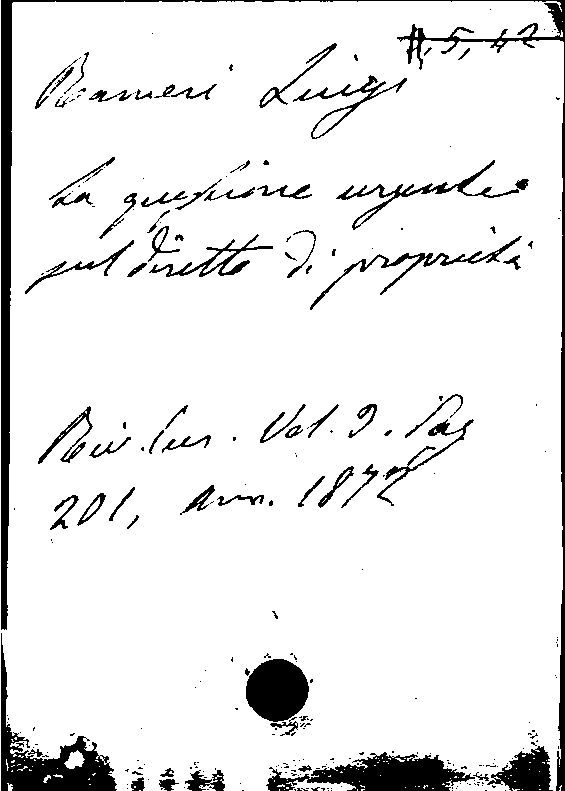 II, 5, 42
Rameri Luigi
La questione urgente
sul diretto di proprietà
Riv. Eur. Vol. 2. Pag
201, Ann. 1872